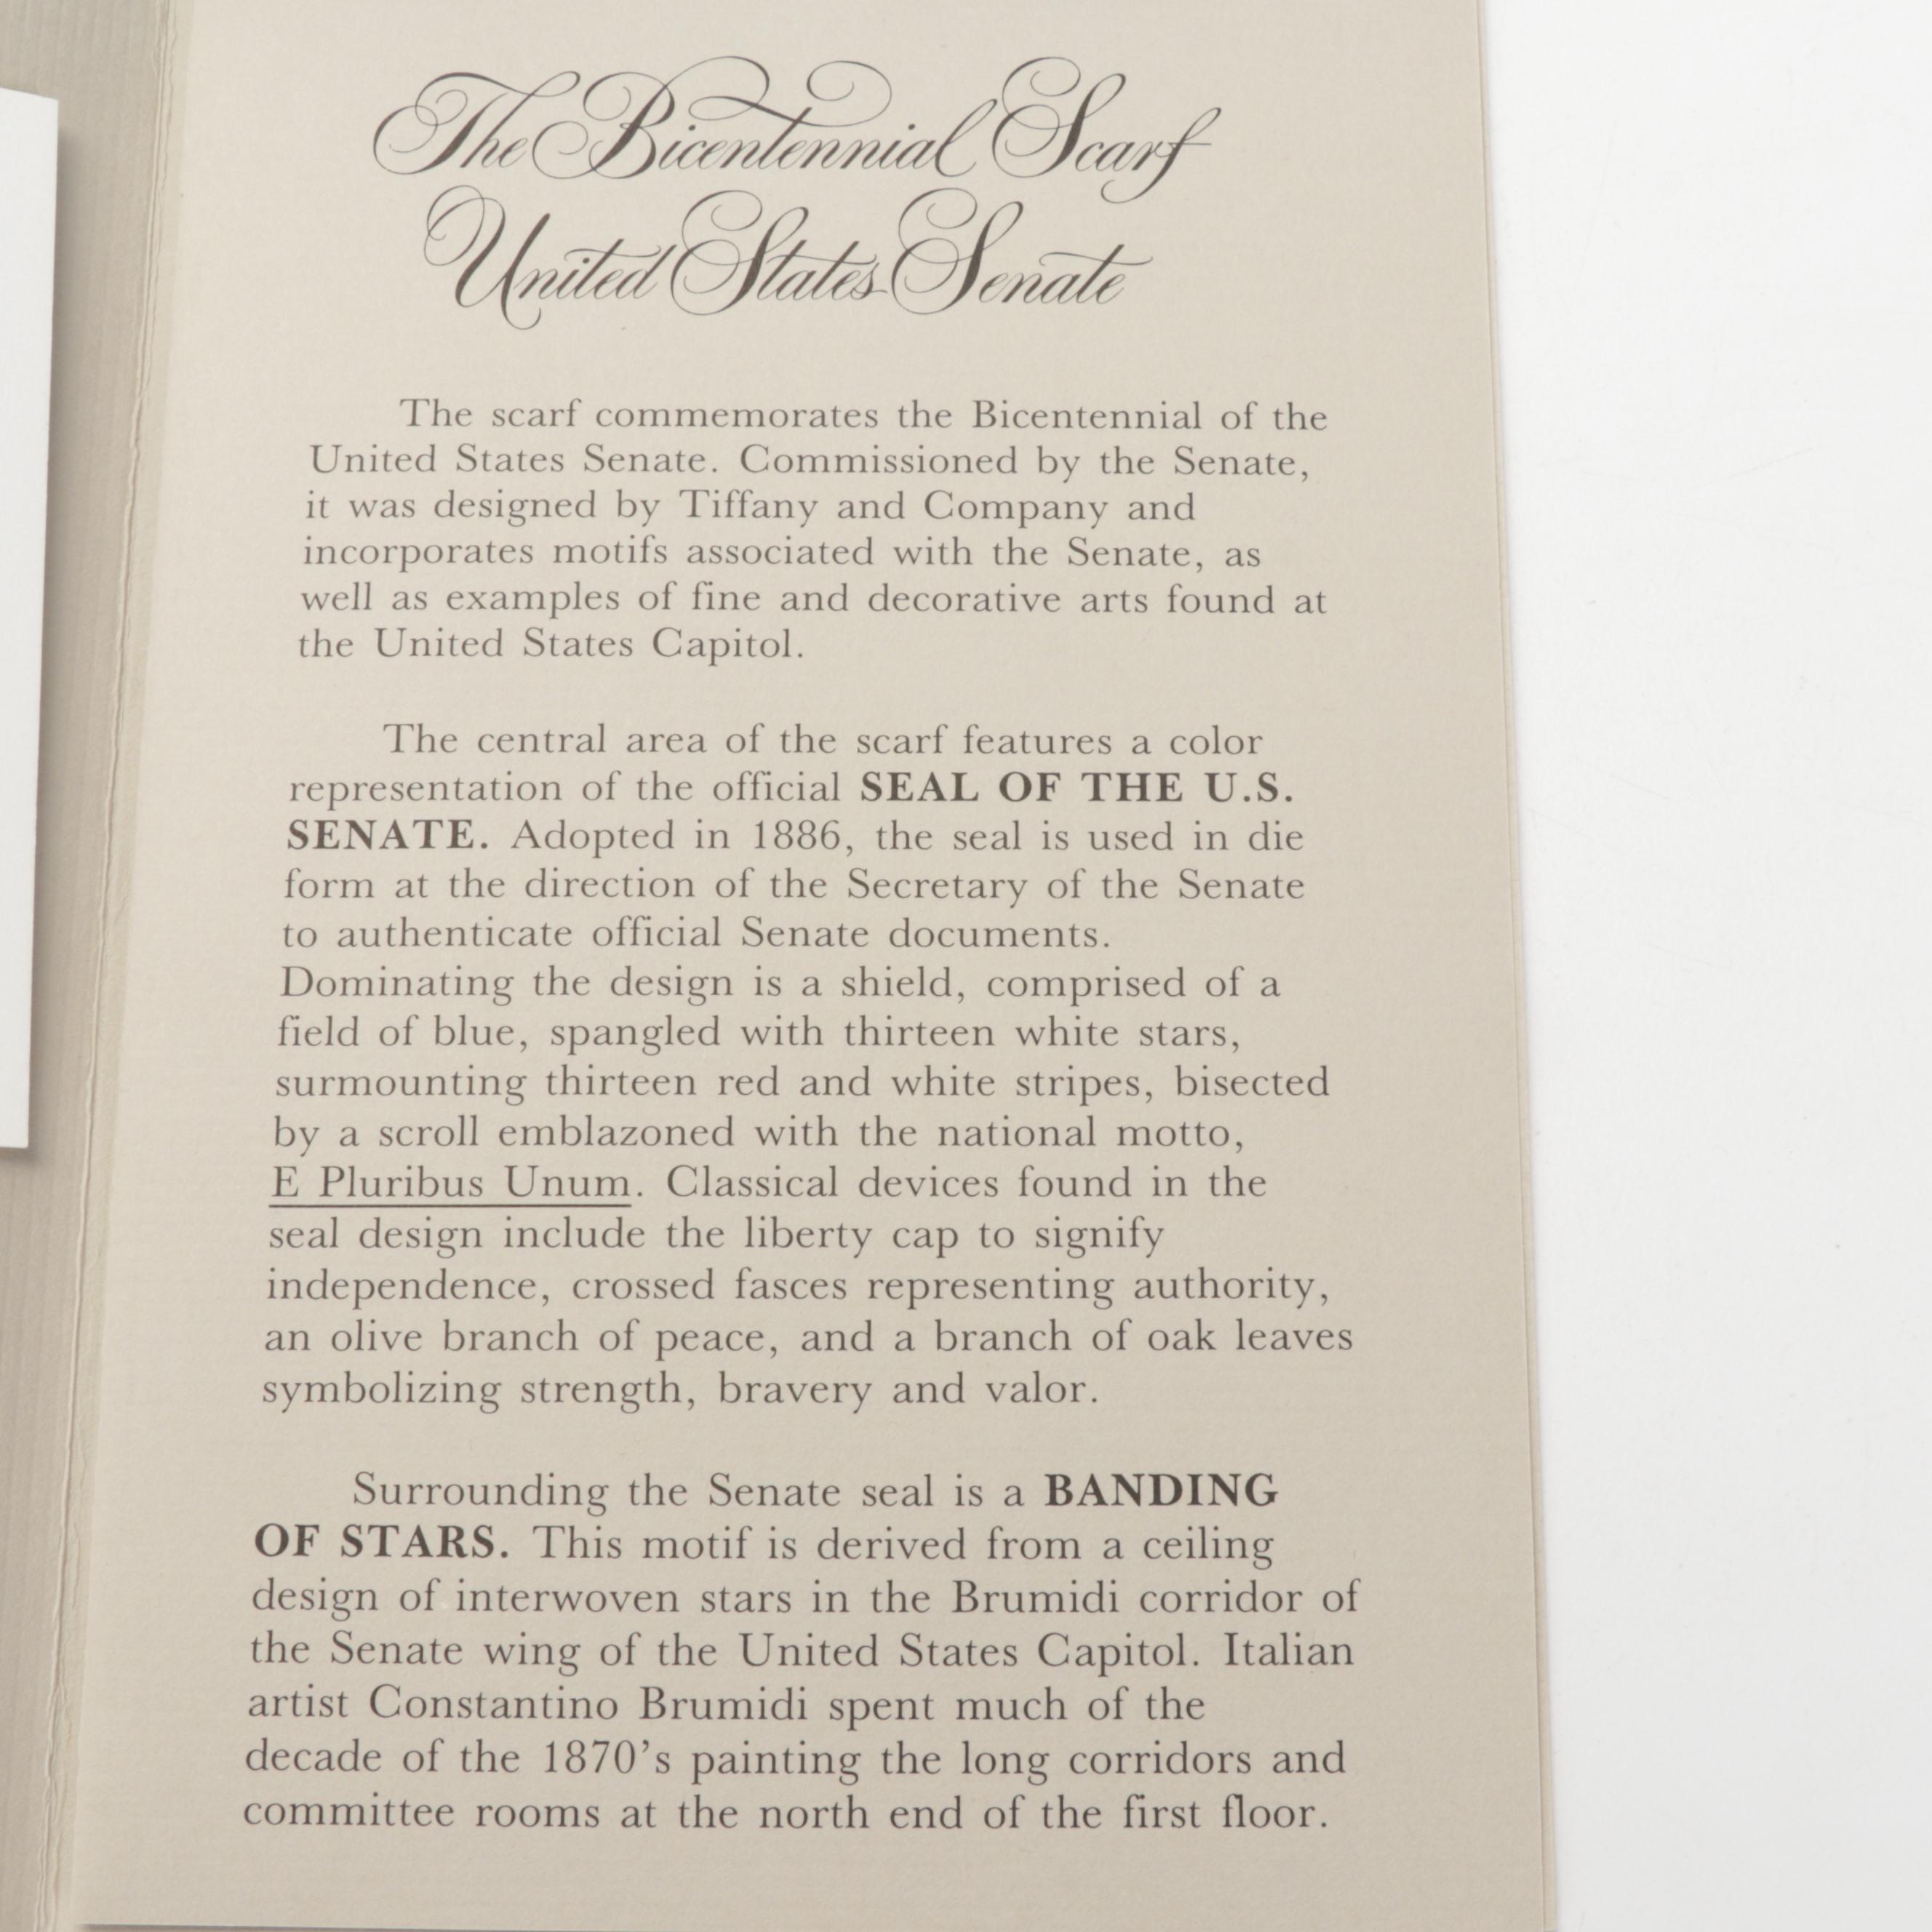 The Bicentennial Scarf
United States Senate
The scarf commemorates the Bicentennial of the
United States Senate. Commissioned by the Senate,
it was designed by Tiffany and Company and
incorporates motifs associated with the Senate, as
well as examples of fine and decorative arts found at
the United States Capitol.
The central area of the scarf features a color
representation of the official SEAL OF THE U.S.
SENATE. Adopted in 1886, the seal is used in die
form at the direction of the Secretary of the Senate
to authenticate official Senate documents.
Dominating the design is a shield, comprised of a
field of blue, spangled with thirteen white stars,
surmounting thirteen red and white stripes, bisected
by a scroll emblazoned with the national motto,
E Pluribus Unum. Classical devices found in the
seal design include the liberty cap to signify
independence, crossed fasces representing authority,
an olive branch of peace, and a branch of oak leaves
symbolizing strength, bravery and valor.
Surrounding the Senate seal is a BANDING
OF STARS. This motif is derived from a ceiling
design of interwoven stars in the Brumidi corridor of
the Senate wing of the United States Capitol. Italian
artist Constantino Brumidi spent much of the
decade of the 1870's painting the long corridors and
committee rooms at the north end of the first floor.